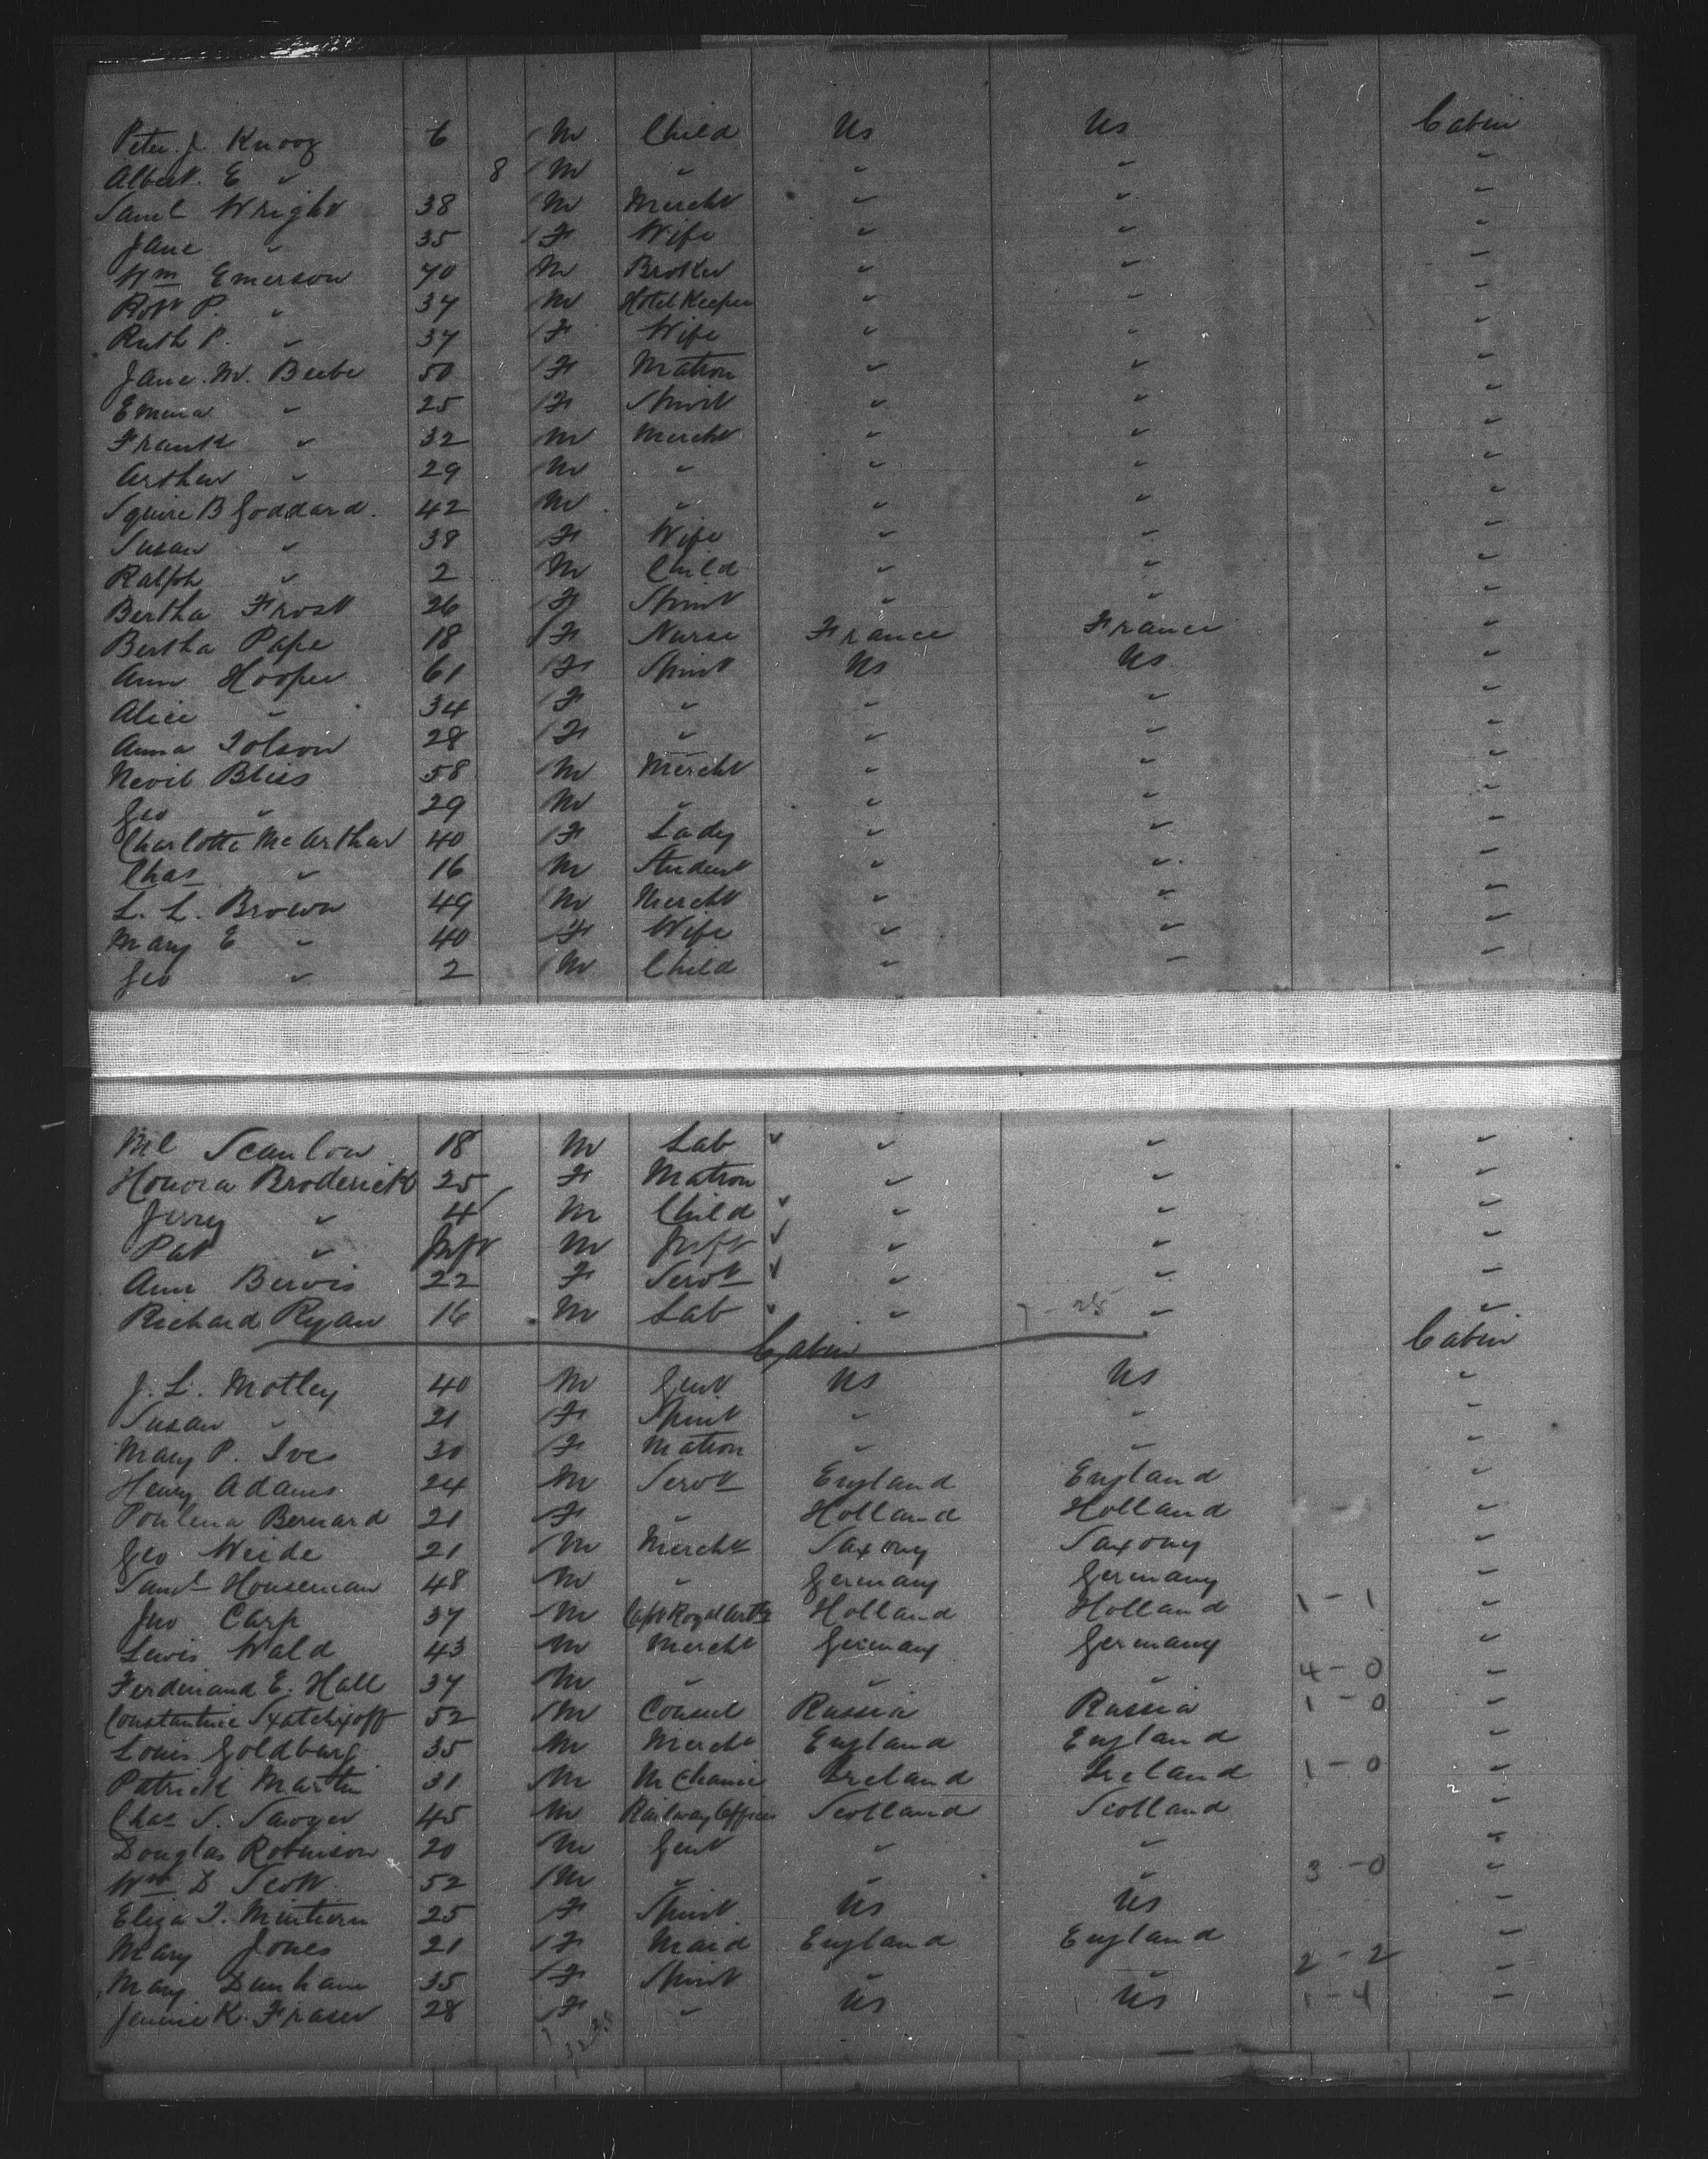 Peter J. Knooz 6 M Child Us Us Cabin
Albert E " 8 M " " " "
Saml Wright 38 M Mercht " " "
Jane " 35 F Wife " " "
Wm Emerson 70 M Broker " " "
Robt P. " 37 M Hotel Keeper " " "
Ruth P. " 37 F Wife " " "
Jane M. Beebe 50 F Matron " " "
Emma " 25 F Spinst " " "
Frank " 32 M Mercht " " "
Arthur " 29 M " " " "
Squire B Goddard. 42 M " " " "
Susan " 38 F Wife " " "
Ralph " 2 M Child " " "
Bertha Frost 26 F Spinst " " "
Bertha Pape 18 F Nurse France France "
Ann Hooper 61 F Spinst Us Us "
Alice " 34 F " " " "
Anna Tolson 28 F " " " "
Nevil Bliss 58 M Mercht " " "
Geo " 29 M " " " "
Charlotte McArthur 40 F Lady " " "
Chas " 16 M Student " " "
L. L. Brown 49 M Mercht " " "
Mary E " 40 F Wife " " "
Geo " 2 M Child " " "
Ml Scanlon 18 M Lab " " "
Honora Broderick 25 F Matron " " "
Jerry " 4 M Child " " "
Pat " Inft M Inft " " "
Ann Bervis 22 F Servt " " "
Richard Ryan 16 M Lab " " "
Cabin Cabin
J. L. Motley 40 M Gent Us Us "
Susan " 21 F Spinst " " "
Mary P. Ives 30 F Matron " " "
Henry Adams 24 M Servt England England "
Poulena Bernard 21 F " Holland Holland "
Geo Weide 21 M Mercht Saxony Saxony "
Saml Houseman 48 M " Germany Germany "
Jno Carp 37 M Capt Royal Arty Holland Holland 1-1 "
Lewis Wald 43 M Mercht Germany Germany "
Ferdinand E. Hall 37 M " " " 4-0 "
Constantine 52 M Consul Russia Russia 1-0 "
Louis Goldburg 35 M Mercht England England "
Patrick Martin 31 M Mchanic Ireland Ireland 1-0 "
Chas S. Sawyer 45 M Railway Officer Scotland Scotland "
Douglas Robinson 20 M Gent " " "
Wm D Scott. 52 M " " " 3-0 "
Eliza T. Minturn 25 F Spinst Us Us "
Mary Jones 21 F Maid England England "
Mary Dunham 35 F Spinst " " 2-2 "
Jennie K. Fraser 28 F " Us Us 1-4 "